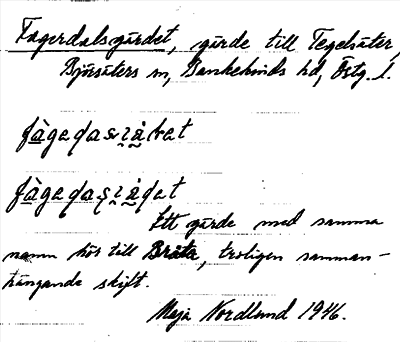 Fagerdalsgärdet, gärde till Tegelsäter,
Björsäters sn, Bankekinds hd, Östg. l.
Ett gärde med samma
namn hör till Bråta, troligen samman-
hängande skift.
Maja Nordlund 1946.